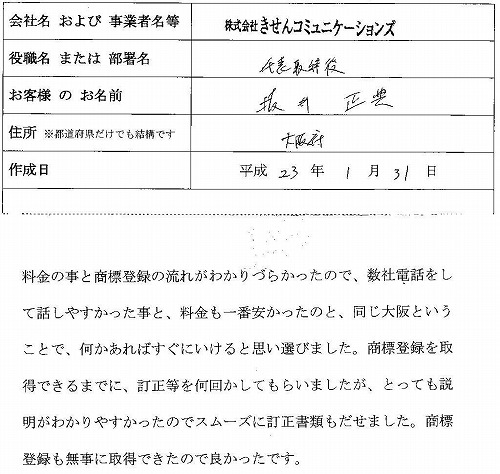 会社名 および 事業者名等 株式会社きせんコミュニケーションズ
役職名 または 部署名 代表取締役
お客様 の お名前 坂井 正典
住所 ※都道府県だけでも結構です 大阪府
作成日 平成 23 年 1 月 31 日
料金の事と商標登録の流れがわかりづらかったので、数社電話をし
て話しやすかった事と、料金も一番安かったのと、同じ大阪という
ことで、何かあればすぐにいけると思い選びました。商標登録を取
得できるまでに、訂正等を何回かしてもらいましたが、とっても説
明がわかりやすかったのでスムーズに訂正書類もだせました。商標
登録も無事に取得できたので良かったです。